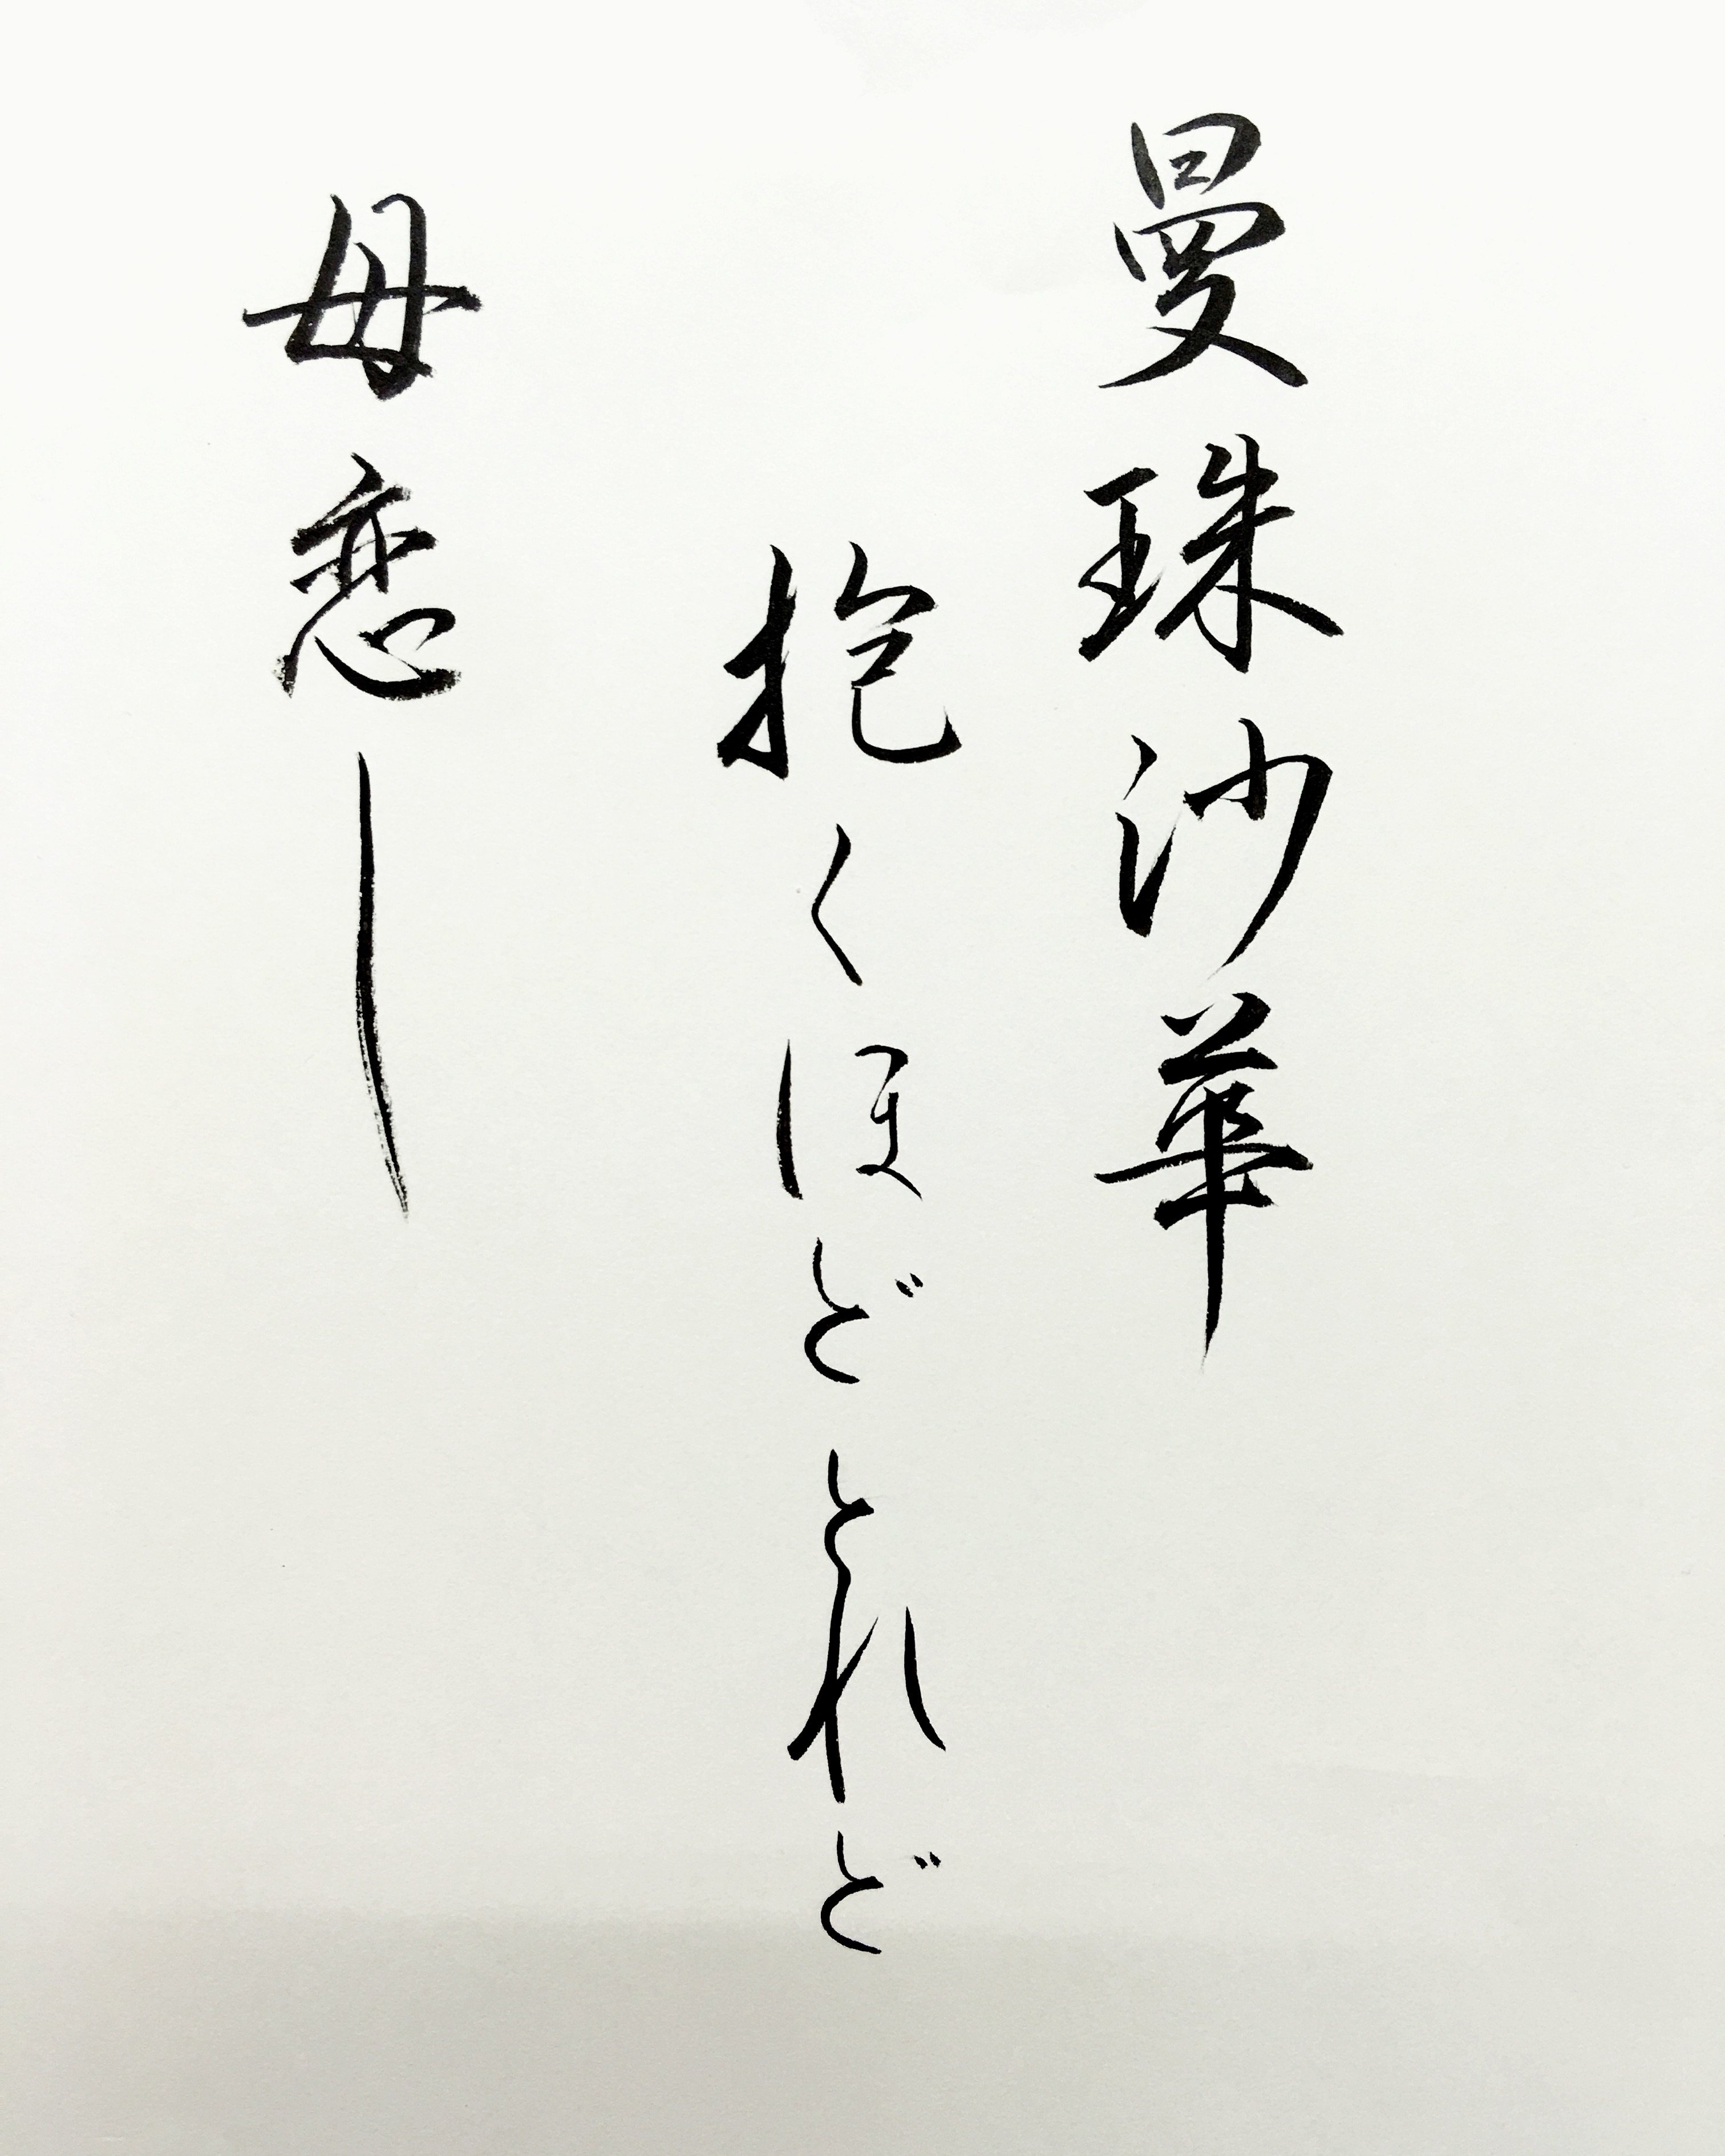 曼珠沙華
抱くほどとれど
母恋し